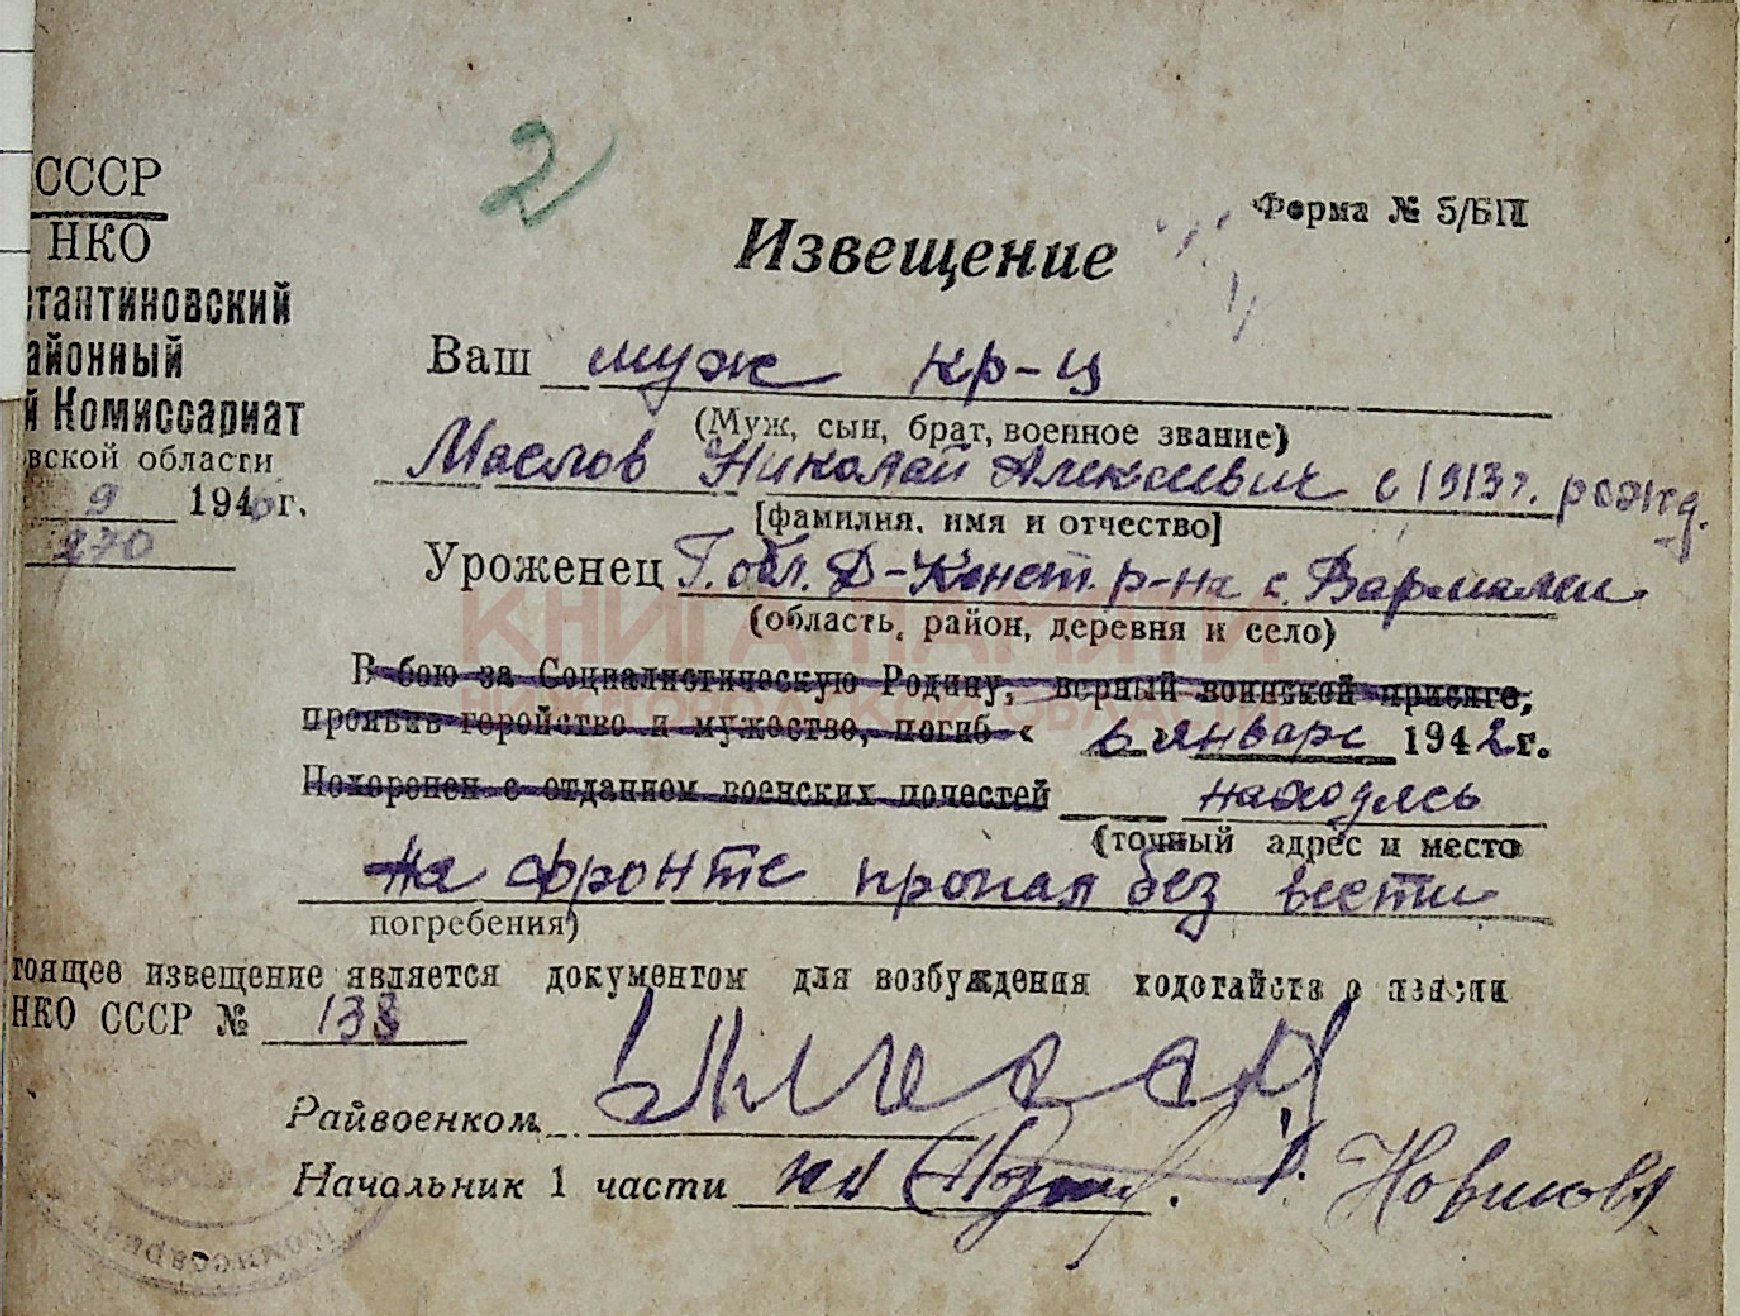 2
СССР
НКО
стантиновский
айонный
й Комиссариат
вской области
9 1946 г.
270
Форма № 5/БП
Извещение
Ваш муж кр-ц
(Муж, сын, брат, военное звание)
Маслов Николай Алексеевич с 1913 г. рожд.
[фамилия, имя и отчество]
Уроженец Г. обл. Д-Конст. р-на с. Вармалеи
(область, район, деревня и село)
КНИГА ПАМЯТИ
НИЖЕГОРОДСКОЙ ОБЛАСТИ
В бою за Социалистическую Родину, верный воинской присяге,
проявив геройство и мужество, погиб « 6 января 1942 г.
Похоронен с отданием военских почестей находясь
(точный адрес и место
на фронте пропал без вести
погребения)
тоящее извещение является документом для возбуждения ходотайств о пенсии
НКО СССР № 138
Райвоенком
Начальник 1 части
Новикова
Комиссариат